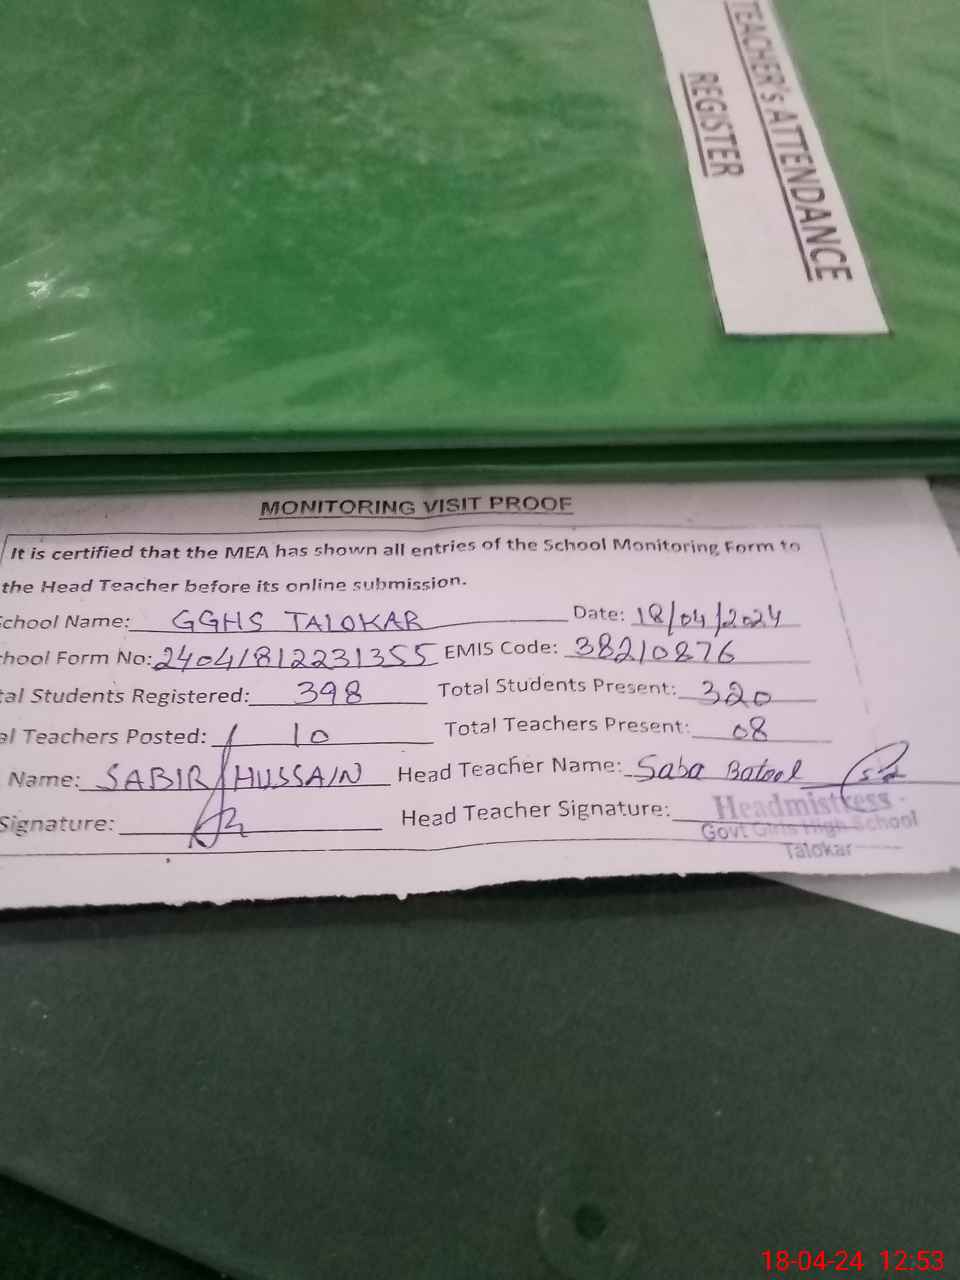 TEACHER's ATTENDANCE
REGISTER
MONITORING VISIT PROOF
It is certified that the MEA has shown all entries of the School Monitoring Form to
the Head Teacher before its online submission.
chool Name: GGHS TALOKAR Date: 18/04/2024
hool Form No: 24041812231355 EMIS Code: 38210876
tal Students Registered: 398 Total Students Present: 320
al Teachers Posted: 10 Total Teachers Present: 08
Name: SABIR HUSSAIN Head Teacher Name: Saba Batool
Signature: Head Teacher Signature:
Headmistress
Govt Girls High School
Talokar
18-04-24 12:53